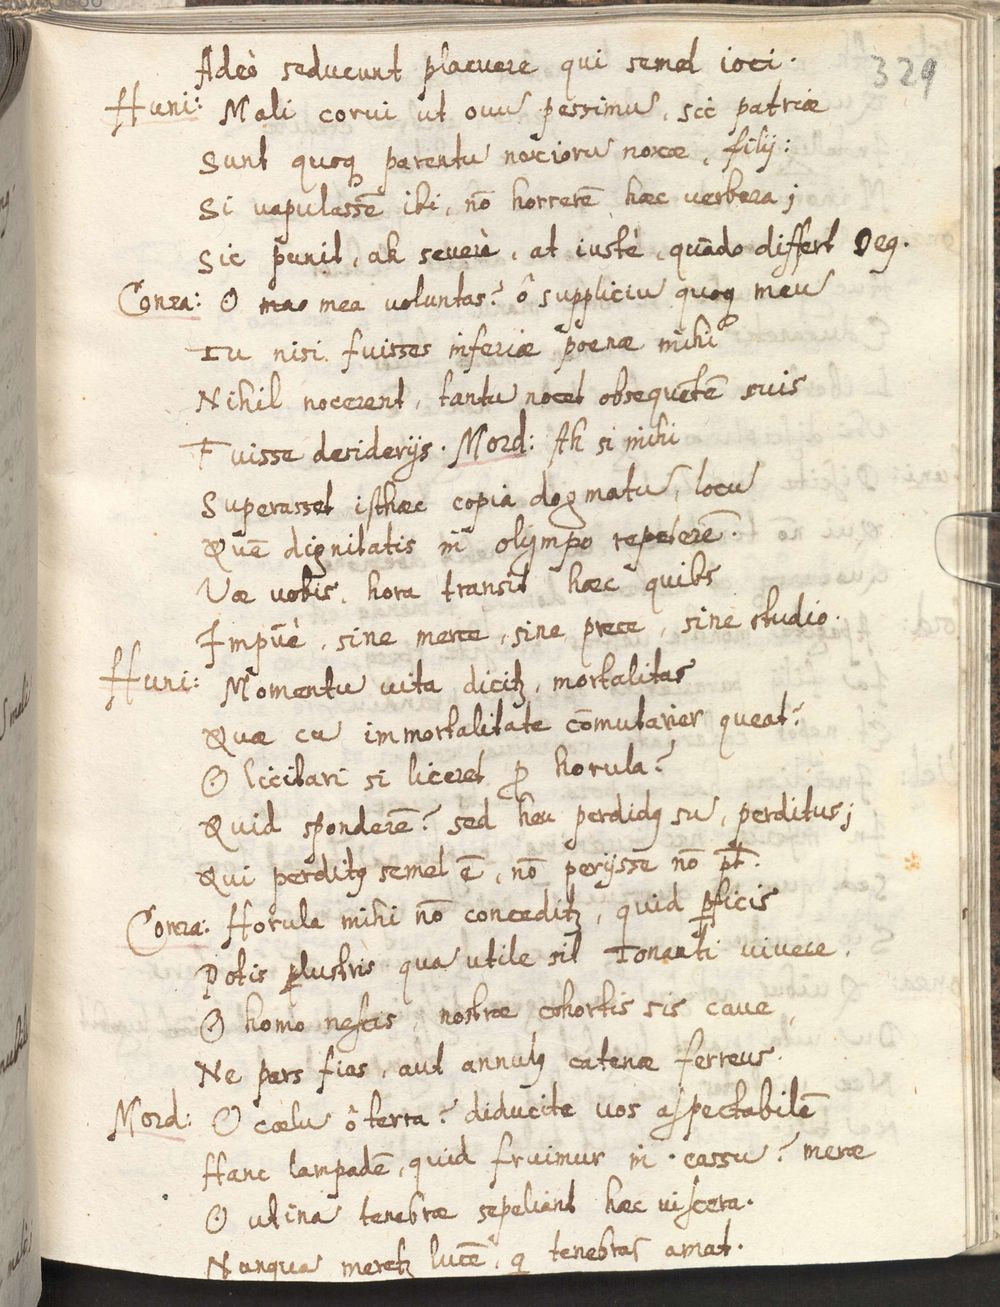 329
Adeò seducunt placuere qui semel ioci.
Huni: Mali corui ut ouū pessimū, scè patriæ
Sunt quoq parentū noxiorū noxæ, filij:
Si uapulassē ibi, nō horrerē hæc uerbera;
Sic punit, ah seuerè, at iustè, quādo differt Deꝰ.
Conra: O mea uoluntas? ô suppliciū quoq meū
Tu nisi fuisses inferiæ poenæ mihi
Nihil nocerent, tantū nocet obsequētē suis
Fuisse desiderijs. Mord: Ah si mihi
Superasset isthæc copia dogmatū, locū
Quē dignitatis in olympo repeterē.
Væ uobis, hora transit hæc quibs
Impūè, sine merce, sine prece, sine studio.
Huni: Momentū uita dicitꝫ, mortalitas
Quæ cū immortalitate cōmutarier queat?
O licitari si liceret ꝓ horula?
Quid sponderē? sed heu perdidꝰ sū, perditus;
Qui perditꝰ semel ē, nō perijsse nō pt.
Conra: Horula mihi nō conceditꝫ, quid ꝑficis
Potis plustris qua utile sit Tonanti uiuere.
O homo nescis, nostræ cohortis sis caue,
Ne pars fias, aut annulꝰ catenæ ferreus.
Mord: O cælū ô terra? diducite uos aspectabilē
Hanc lampadē, quid fruimur in cassū? meræ
O utinā tenebræ sepeliant hæc uiscera.
Nunquā meretꝫ lucē, q tenebras amat.